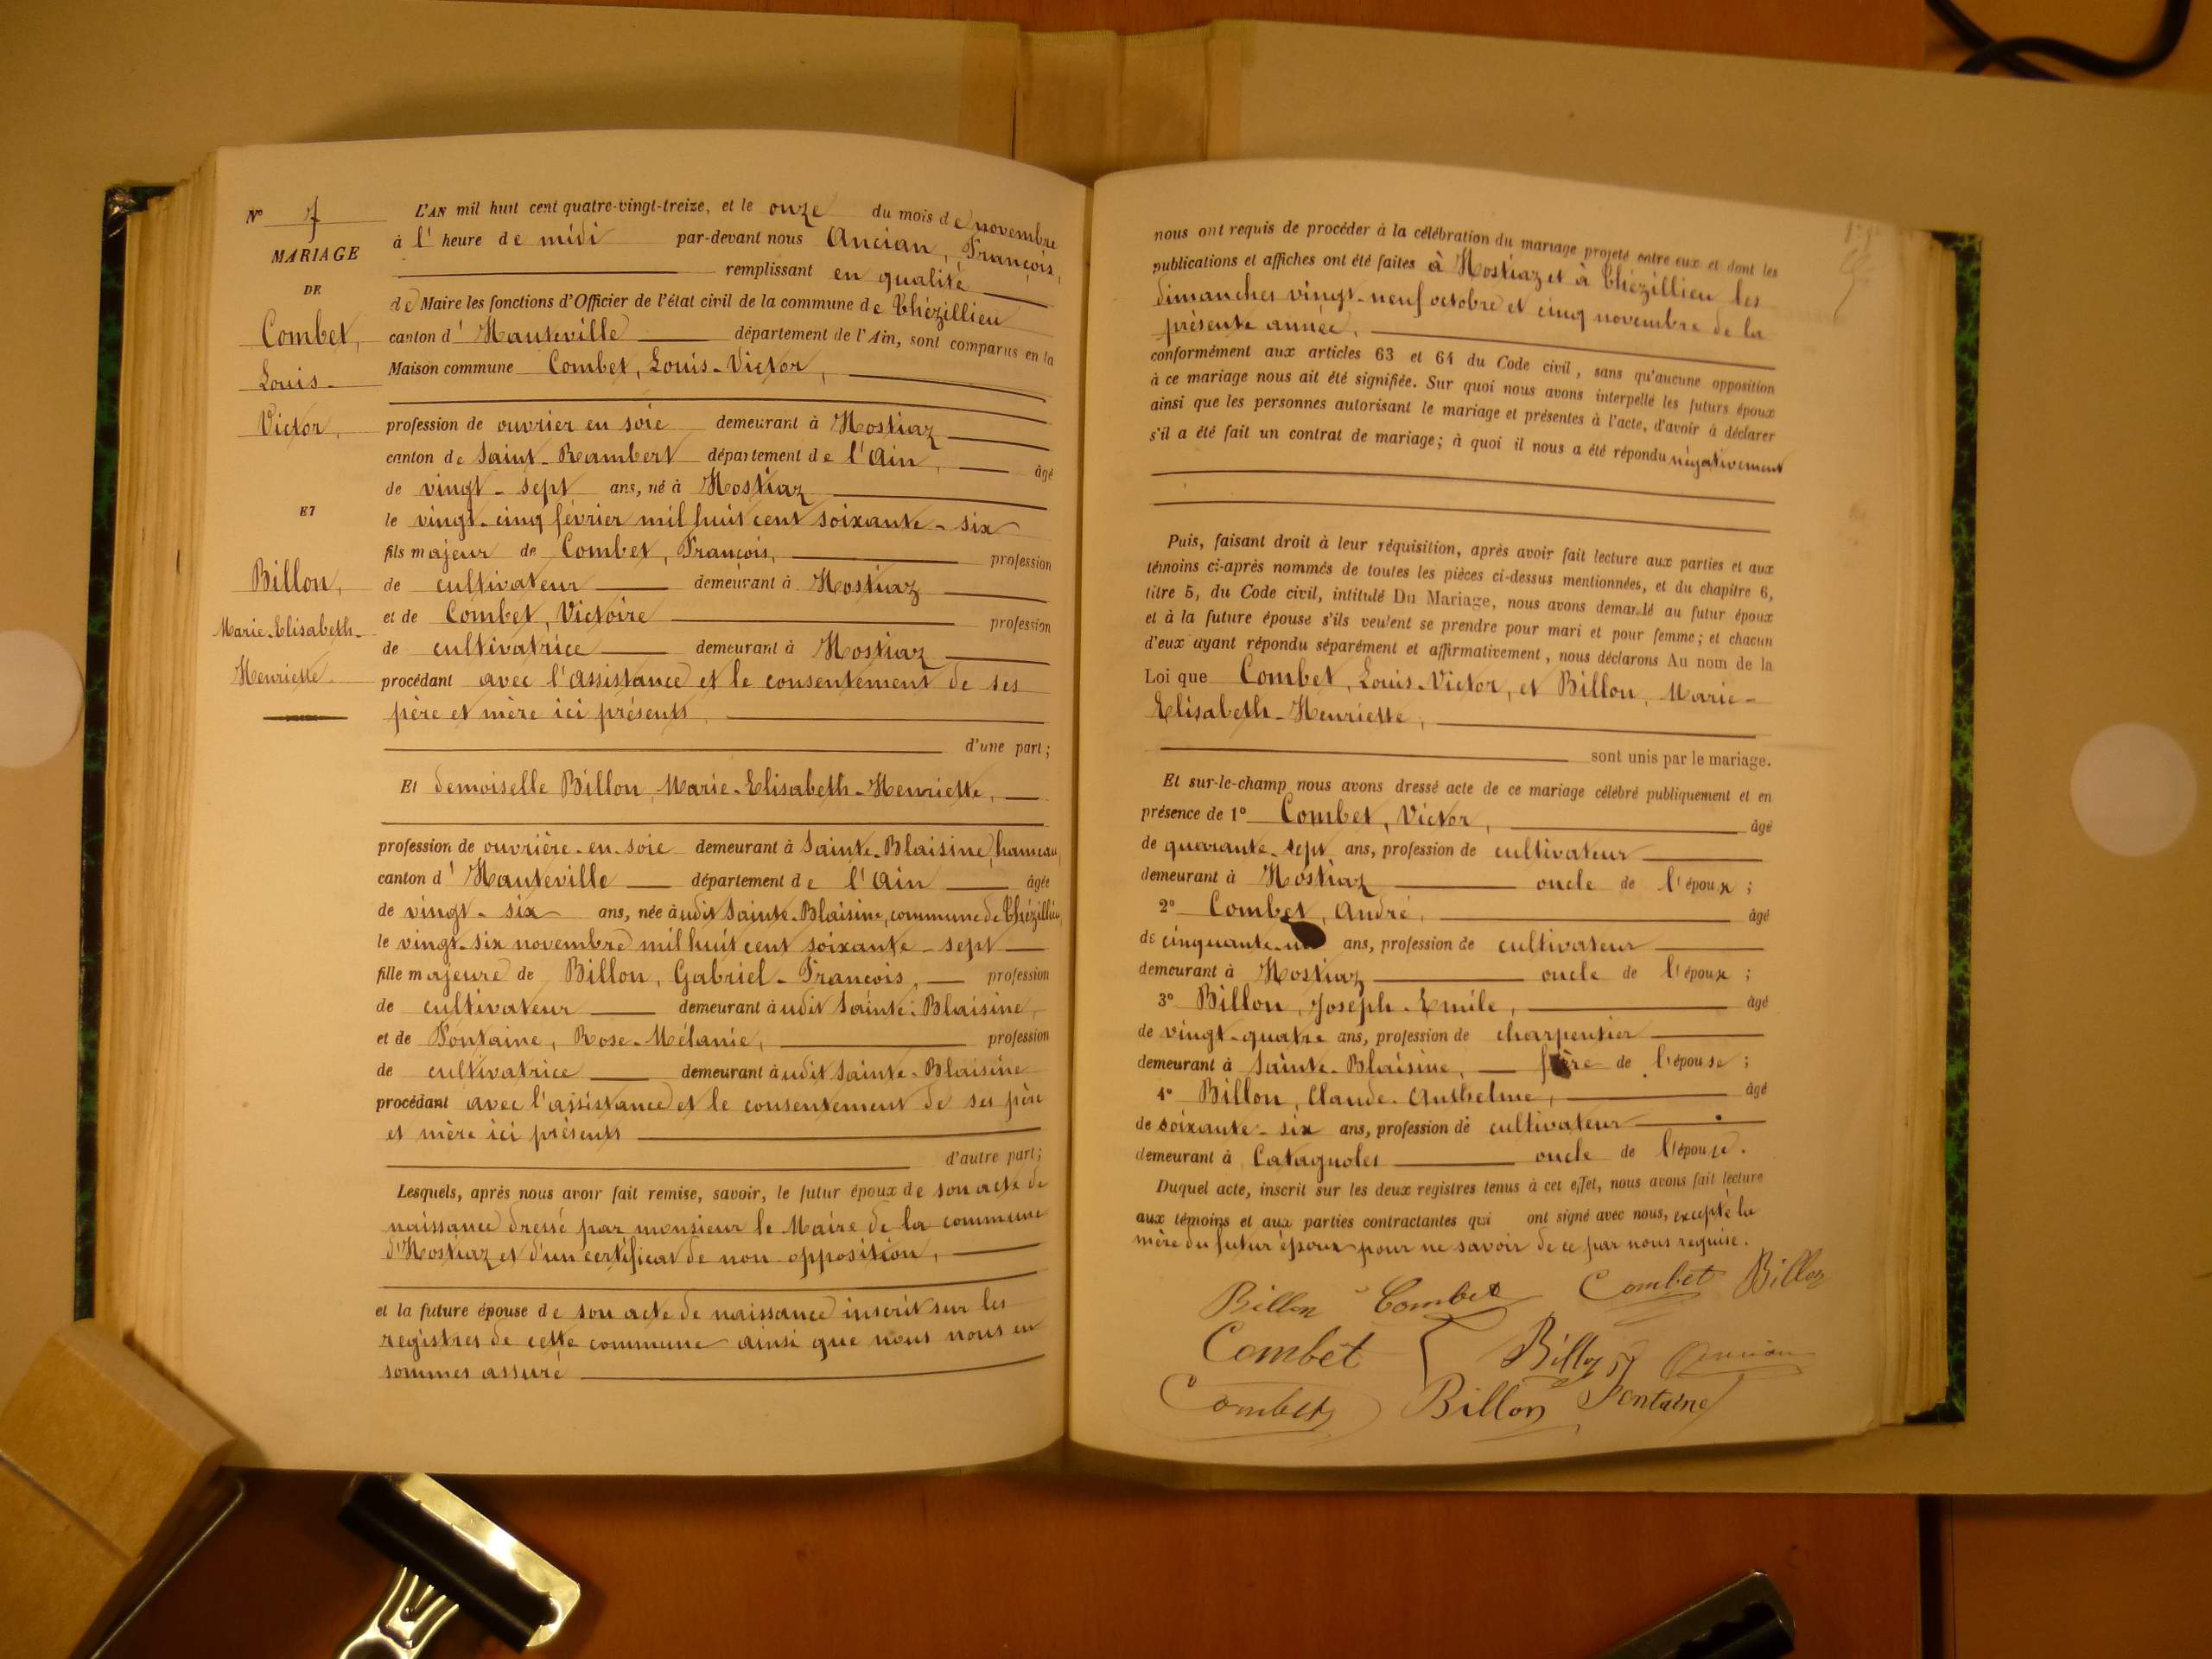 N° 7
MARIAGE
DE
Combet,
Louis
Victor,
ET
Billon,
Marie-Elisabeth-
Henriette
L'AN mil huit cent quatre-vingt-treize, et le onze du mois de novembre
à l' heure de midi par-devant nous Ancian, François,
remplissant en qualité
de Maire les fonctions d'Officier de l'état civil de la commune de Thézillieu
canton d' Hauteville département de l'Ain, sont comparus en la
Maison commune Combet, Louis-Victor,
profession de ouvrier en soie demeurant à Hostiaz
canton de Saint-Rambert département de l'Ain, âgé
de vingt-sept ans, né à Hostiaz
le vingt-cinq février mil huit cent soixante-six
fils majeur de Combet, François, profession
de cultivateur demeurant à Hostiaz
et de Combet, Victoire profession
de cultivatrice demeurant à Hostiaz
procédant avec l'assistance et le consentement de ses
père et mère ici présents,
d'une part;
Et demoiselle Billon, Marie-Elisabeth-Henriette,
profession de ouvrière-en-soie demeurant à Sainte-Blaisine, hameau,
canton d' Hauteville département de l'Ain âgée
de vingt-six ans, née à udit Sainte-Blaisine, commune de Thézillieu,
le vingt-six novembre mil huit cent soixante-sept
fille majeure de Billon, Gabriel-François, profession
de cultivateur demeurant à udit Sainte-Blaisine,
et de Fontaine, Rose-Mélanie, profession
de cultivatrice demeurant à udit Sainte-Blaisine
procédant avec l'assistance et le consentement de ses père
et mère ici présents
d'autre part;
Lesquels, après nous avoir fait remise, savoir, le futur époux de son acte de
naissance dressé par monsieur le Maire de la commune
d'Hostiaz et d'un certificat de non opposition,
et la future épouse de son acte de naissance inscrit sur les
registres de cette commune ainsi que nous nous en
sommes assuré
nous ont requis de procéder à la célébration du mariage projeté entre eux et dont les
publications et affiches ont été faites à Hostiaz et à Thézillieu les
dimanches vingt-neuf octobre et cinq novembre de la
présente année,
conformément aux articles 63 et 64 du Code civil, sans qu'aucune opposition
à ce mariage nous ait été signifiée. Sur quoi nous avons interpellé les futurs époux
ainsi que les personnes autorisant le mariage et présentes à l'acte, d'avoir à déclarer
s'il a été fait un contrat de mariage; à quoi il nous a été répondu négativement
Puis, faisant droit à leur réquisition, après avoir fait lecture aux parties et aux
témoins ci-après nommés de toutes les pièces ci-dessus mentionnées, et du chapitre 6,
titre 5, du Code civil, intitulé Du Mariage, nous avons demandé au futur époux
et à la future épouse s'ils veulent se prendre pour mari et pour femme; et chacun
d'eux ayant répondu séparément et affirmativement, nous déclarons Au nom de la
Loi que Combet, Louis-Victor, et Billon, Marie-
Elisabeth-Henriette,
sont unis par le mariage.
Et sur-le-champ nous avons dressé acte de ce mariage célébré publiquement et en
présence de 1° Combet, Victor, âgé
de quarante-sept ans, profession de cultivateur
demeurant à Hostiaz oncle de l'époux;
2° Combet, André, âgé
de cinquante-un ans, profession de cultivateur
demeurant à Hostiaz oncle de l'époux;
3° Billon, Joseph-Emile, âgé
de vingt-quatre ans, profession de charpentier
demeurant à Sainte-Blaisine, frère de l'épouse;
4° Billon, Claude-Anthelme, âgé
de soixante-six ans, profession de cultivateur
demeurant à Catagnoles oncle de l'épouse.
Duquel acte, inscrit sur les deux registres tenus à cet effet, nous avons fait lecture
aux témoins et aux parties contractantes qui ont signé avec nous, excepté la
mère du futur époux pour ne savoir de ce par nous requise.
Billon Combet Combet Billon
Combet Billon Ancian
Combet Billon Fontaine